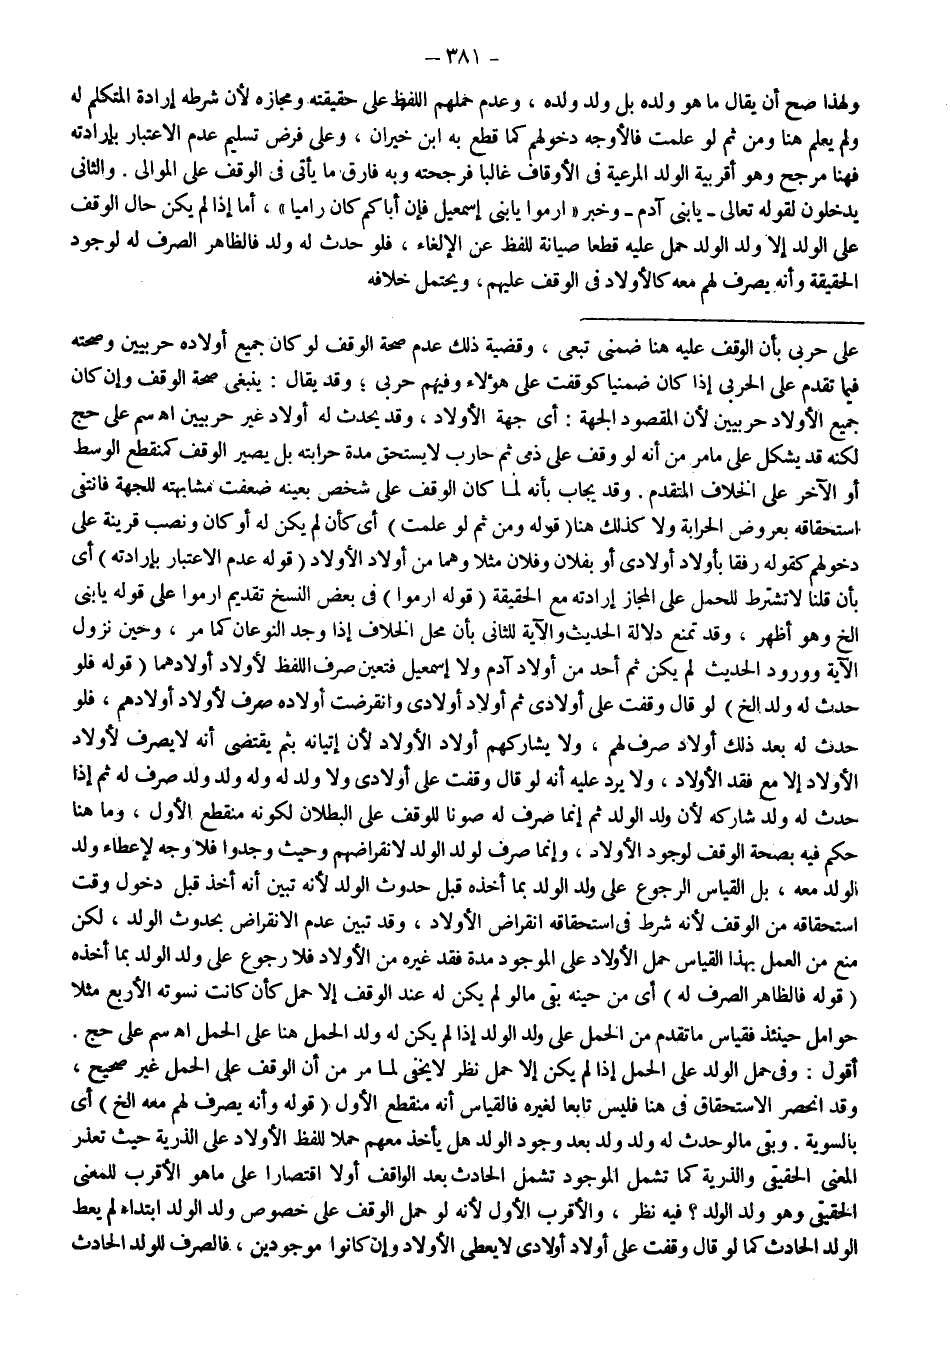 - ٣٨١ -
ولهذا صح أن يقال ما هو ولده بل ولد ولده ، وعدم حملهم اللفظ على حقيقته ومجازه لأن شرطه إرادة المتكلم له
ولم يعلم هنا ومن ثم لو علمت فالأوجه دخولهم كما قطع به ابن خيران ، وعلى فرض تسليم عدم الاعتبار بإرادته
فهنا مرجح وهو أقربية الولد المرعية فى الأوقاف غالبا فرجحته وبه فارق ما يأتى فى الوقف على الموالى . والثانى
يدخلون لقوله تعالى - يابنى آدم - وخبر « ارموا يابنى إسمعيل فإن أباكم كان راميا » ، أما إذا لم يكن حال الوقف
على الولد إلا ولد الولد حمل عليه قطعا صيانة للفظ عن الإلغاء ، فلو حدث له ولد فالظاهر الصرف له لوجود
الحقيقة وأنه يصرف لهم معه كالأولاد فى الوقف عليهم ، ويحتمل خلافه
على حربى بأن الوقف عليه هنا ضمنى تبعى ، وقضية ذلك عدم صحة الوقف لو كان جميع أولاده حربيين وصحته
فيما تقدم على الحربى إذا كان ضمنيا كوقفت على هؤلاء وفيهم حربى ؛ وقد يقال : ينبغى صحة الوقف وإن كان
جميع الأولاد حربيين لأن المقصود الجهة : أى جهة الأولاد ، وقد يحدث له أولاد غير حربيين اه سم على حج
لكنه قد يشكل على مامر من أنه لو وقف على ذى ثم حارب لايستحق مدة حرابته بل يصير الوقف كمنقطع الوسط
أو الآخر على الخلاف المتقدم . وقد يجاب بأنه لما كان الوقف على شخص بعينه ضعفت مشابهته للجهة فانتفى
استحقاقه بعروض الحرابة ولا كذلك هنا ( قوله ومن ثم لو علمت ) أى كأن لم يكن له أو كان ونصب قرينة على
دخولهم كقوله رفقا بأولاد أولادى أو بفلان وفلان مثلا وهما من أولاد الأولاد ( قوله عدم الاعتبار بإرادته ) أى
بأن قلنا لاتشترط للحمل على المجاز إرادته مع الحقيقة ( قوله ارموا ) فى بعض النسخ تقديم ارموا على قوله يابنى
الخ وهو أظهر ، وقد تمنع دلالة الحديث والآية للثانى بأن محل الخلاف إذا وجد النوعان كما مر ، وحين نزول
الآية وورود الحديث لم يكن ثم أحد من أولاد آدم ولا إسمعيل فتعين صرف اللفظ لأولاد أولادهما ( قوله فلو
حدث له ولد الخ ) لو قال وقفت على أولادى ثم أولاد أولادى وانقرضت أولاده صرف لأولاد أولادهم ، فلو
حدث له بعد ذلك أولاد صرف لهم ، ولا يشاركهم أولاد الأولاد لأن إتيانه بثم يقتضى أنه لايصرف لأولاد
الأولاد إلا مع فقد الأولاد ، ولا يرد عليه أنه لو قال وقفت على أولادى ولا ولد له وله ولد ولد صرف له ثم إذا
حدث له ولد شاركه لأن ولد الولد ثم إنما صرف له صونا للوقف على البطلان لكونه منقطع الأول ، وما هنا
حكم فيه بصحة الوقف لوجود الأولاد ، وإنما صرف لولد الولد لانقراضهم وحيث وجدوا فلا وجه لإعطاء ولد
الولد معه ، بل القياس الرجوع على ولد الولد بما أخذه قبل حدوث الولد لأنه تبين أنه أخذ قبل دخول وقت
استحقاقه من الوقف لأنه شرط فى استحقاقه انقراض الأولاد ، وقد تبين عدم الانقراض بحدوث الولد ، لكن
منع من العمل بهذا القياس حمل الأولاد على الموجود مدة فقد غيره من الأولاد فلا رجوع على ولد الولد بما أخذه
( قوله فالظاهر الصرف له ) أى من حينه بقى مالو لم يكن له عند الوقف إلا حمل كأن كانت نسوته الأربع مثلا
حوامل حينئذ فقياس ماتقدم من الحمل على ولد الولد إذا لم يكن له ولد الحمل هنا على الحمل اه سم على حج .
أقول : وفى حمل الولد على الحمل إذا لم يكن إلا حمل نظر لايخفى لما مر من أن الوقف على الحمل غير صحيح ،
وقد انحصر الاستحقاق فى هنا فليس تابعا لغيره فالقياس أنه منقطع الأول ( قوله وأنه يصرف لهم معه الخ ) أى
بالسوية . وبقى مالوحدث له ولد ولد بعد وجود الولد هل يأخذ معهم حملا للفظ الأولاد على الذرية حيث تعذر
المعنى الحقيقى والذرية كما تشمل الموجود تشمل الحادث بعد الواقف أولا اقتصارا على ماهو الأقرب للمعنى
الحقيقى وهو ولد الولد ؟ فيه نظر ، والأقرب الأول لأنه لو حمل الوقف على خصوص ولد الولد ابتداء لم يعط
الولد الحادث كما لو قال وقفت على أولاد أولادى لايعطى الأولاد وإن كانوا موجودين ، فالصرف للولد الحادث